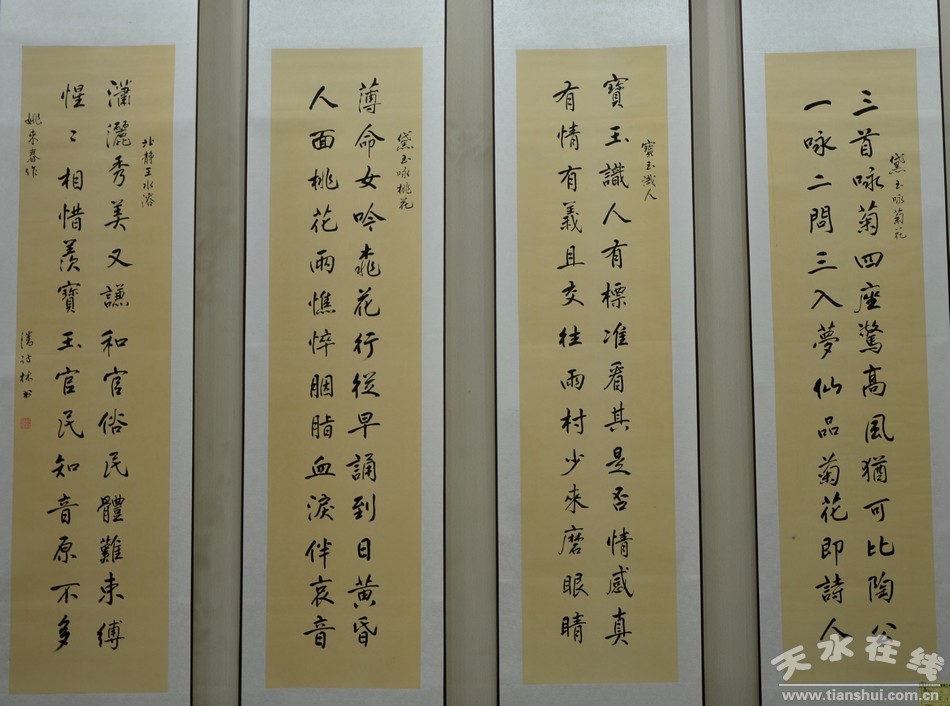 黛玉咏菊花
三首咏菊四座驚高風猶可比陶公
一咏二問三入夢仙品菊花即詩人
寶玉識人
寶玉識人有標准看其是否情感真
有情有義且交往雨村少來磨眼睛
黛玉咏桃花
薄命女吟桃花行從早誦到日黄昏
人面桃花兩憔悴胭脂血淚伴哀音
北静王水溶
瀟灑秀美又謙和官俗民體難束縛
惺〻相惜羨寶玉官民知音原不多
姚来春作
天水在线
www.tianshui.com.cn